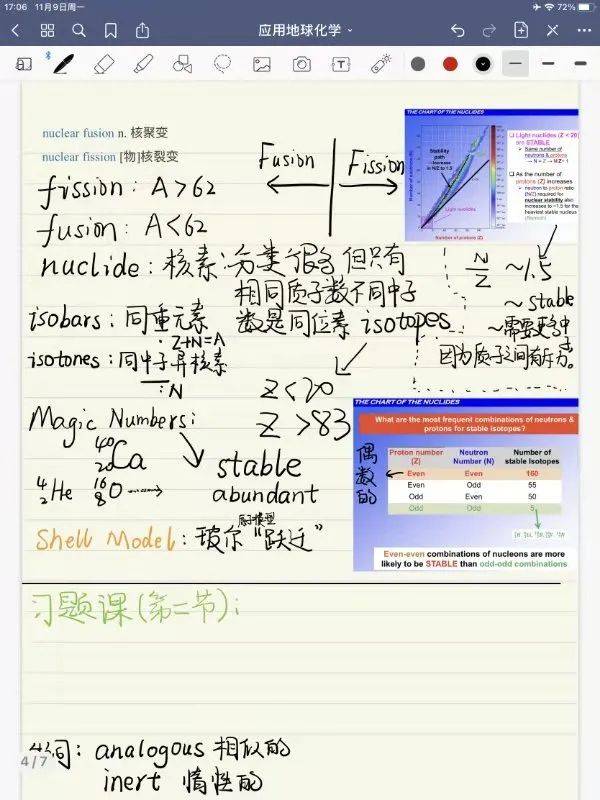 17:06 11月9日周一
72%
应用地球化学
nuclear fusion n. 核聚变
nuclear fission [物]核裂变
Fusion
Fission
fission: A>62
fusion: A<62
THE CHART OF THE NUCLIDES
Stability path
Light nuclides
Number of protons (Z)
Light nuclides (Z < 20) are STABLE
Same number of neutrons & protons
As the number of protons (Z) increases
neutron to proton ratio (N/Z) required for nuclear stability also increases to ~1.5 for the heaviest stable nucleus
nuclide: 核素: 分类很多 但只有
相同质子数不同中子
数是同位素 isotopes
N/Z ~1.5
~ stable
~需要更多中子
因为质子之间有斥力。
isobars: 同重元素
Z+N=A
isotones: 同中子异核素
N
Z<20
Z>83
Magic Numbers:
⁴⁰₂₀Ca
⁴₂He ¹⁶₈O
stable
abundant
原子模型
Shell Model: 玻尔 "跃迁"
THE CHART OF THE NUCLIDES
What are the most frequent combinations of neutrons & protons for stable isotopes?
偶数的
Proton number (Z) Neutron Number (N) Number of stable isotopes
Even Even 160
Even Odd 55
Odd Even 50
Odd Odd 5
Even-even combinations of nucleons are more likely to be STABLE than odd-odd combinations
习题课(第二节):
词: analogous 相似的
inert 惰性的
4/7